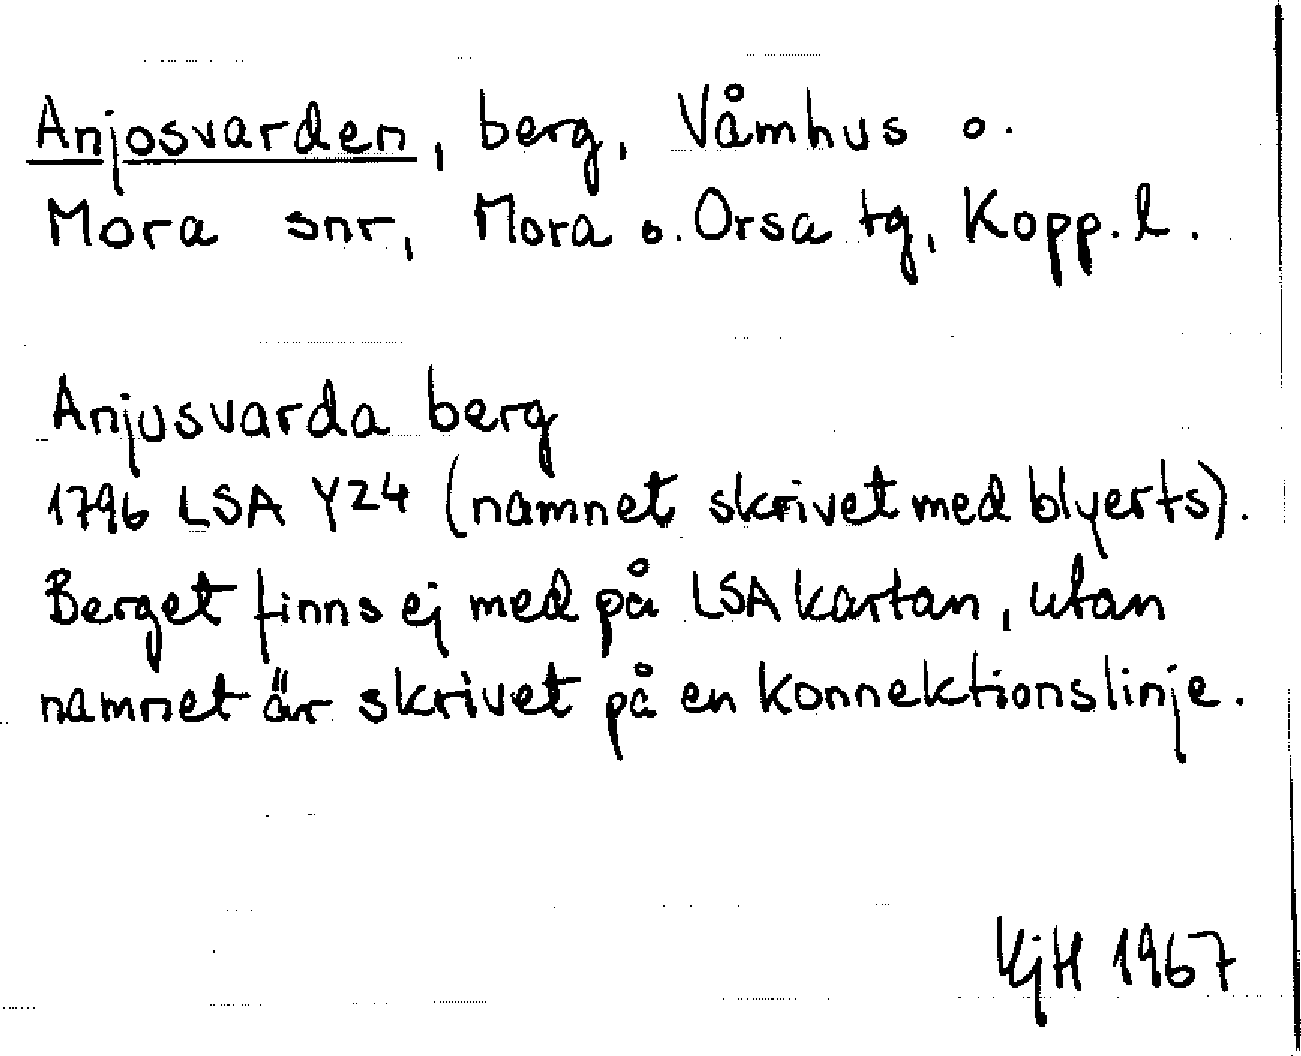 Anjosvarden, berg, Våmhus o.
Mora snr, Mora o. Orsa tg, Kopp. l.
Anjusvarda berg
1796 LSA Y24 (namnet skrivet med blyerts).
Berget finns ej med på LSA kartan, utan
namnet är skrivet på en konnektionslinje.
KjH 1967